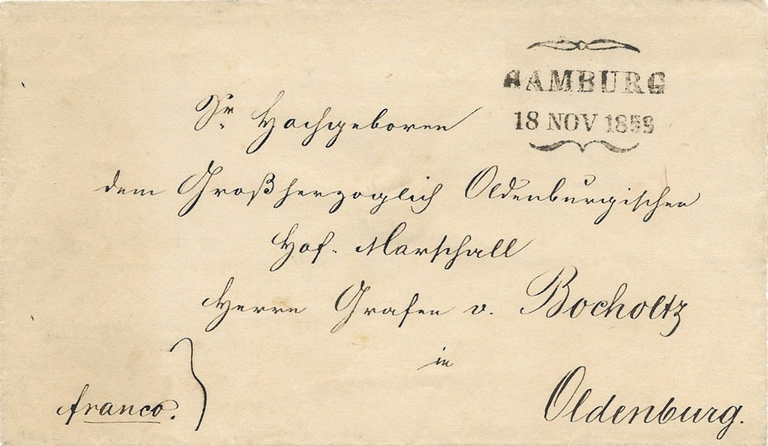 HAMBURG
18 NOV 1859
Sr. Hochgeboren
dem Großherzoglich Oldenburgischen
Hof-Marschall
Herrn Grafen v. Bocholtz
in
franco.
Oldenburg.